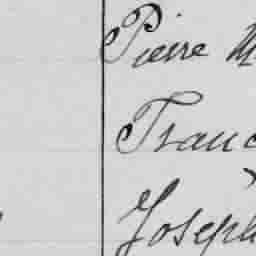 Pierre M
Franc
Joseph